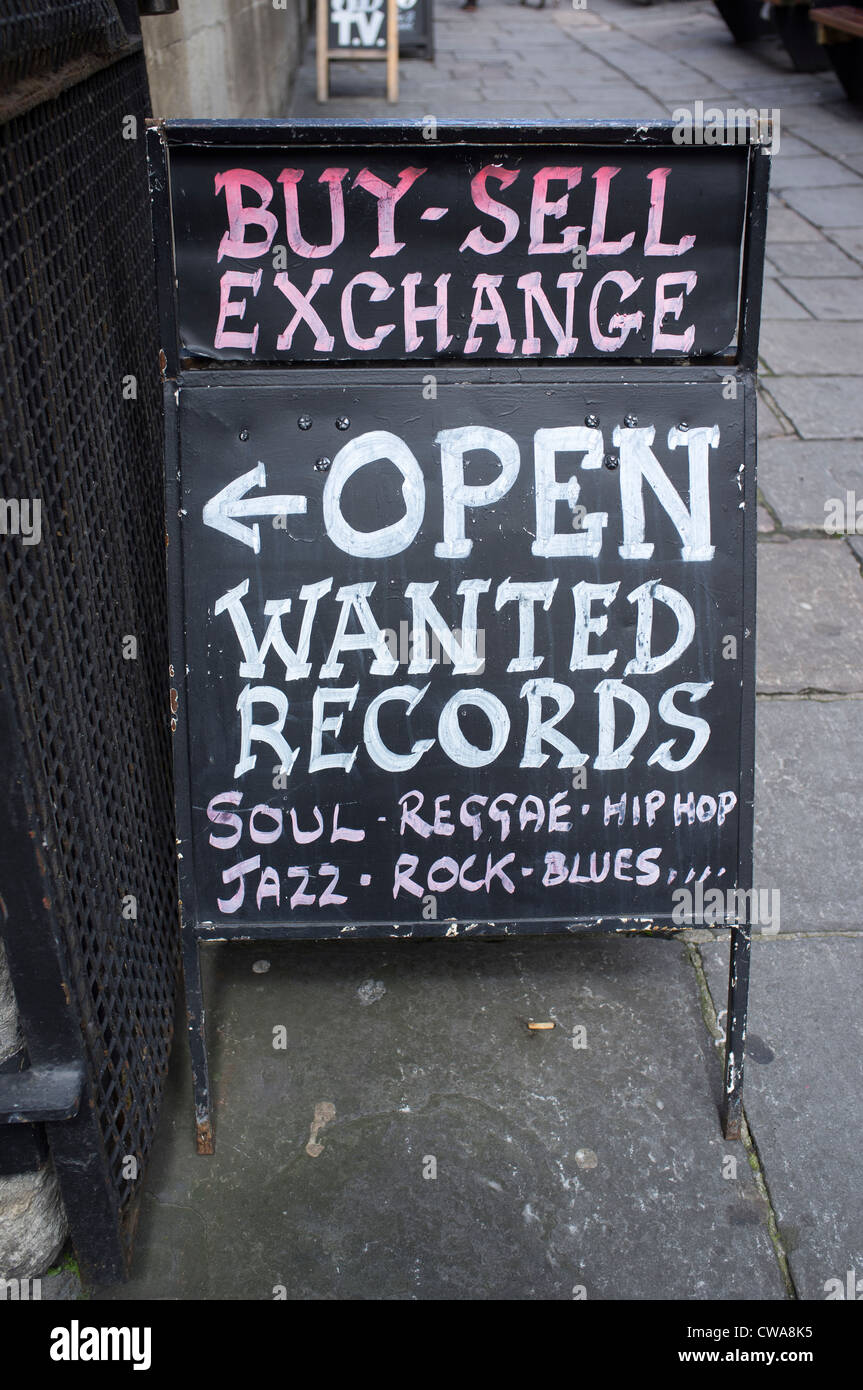 T.V.
BUY-SELL
EXCHANGE
←OPEN
WANTED
RECORDS
SOUL - REGGAE · HIP HOP
JAZZ · ROCK - BLUES....
alamy
Image ID: CWA8K5
www.alamy.com